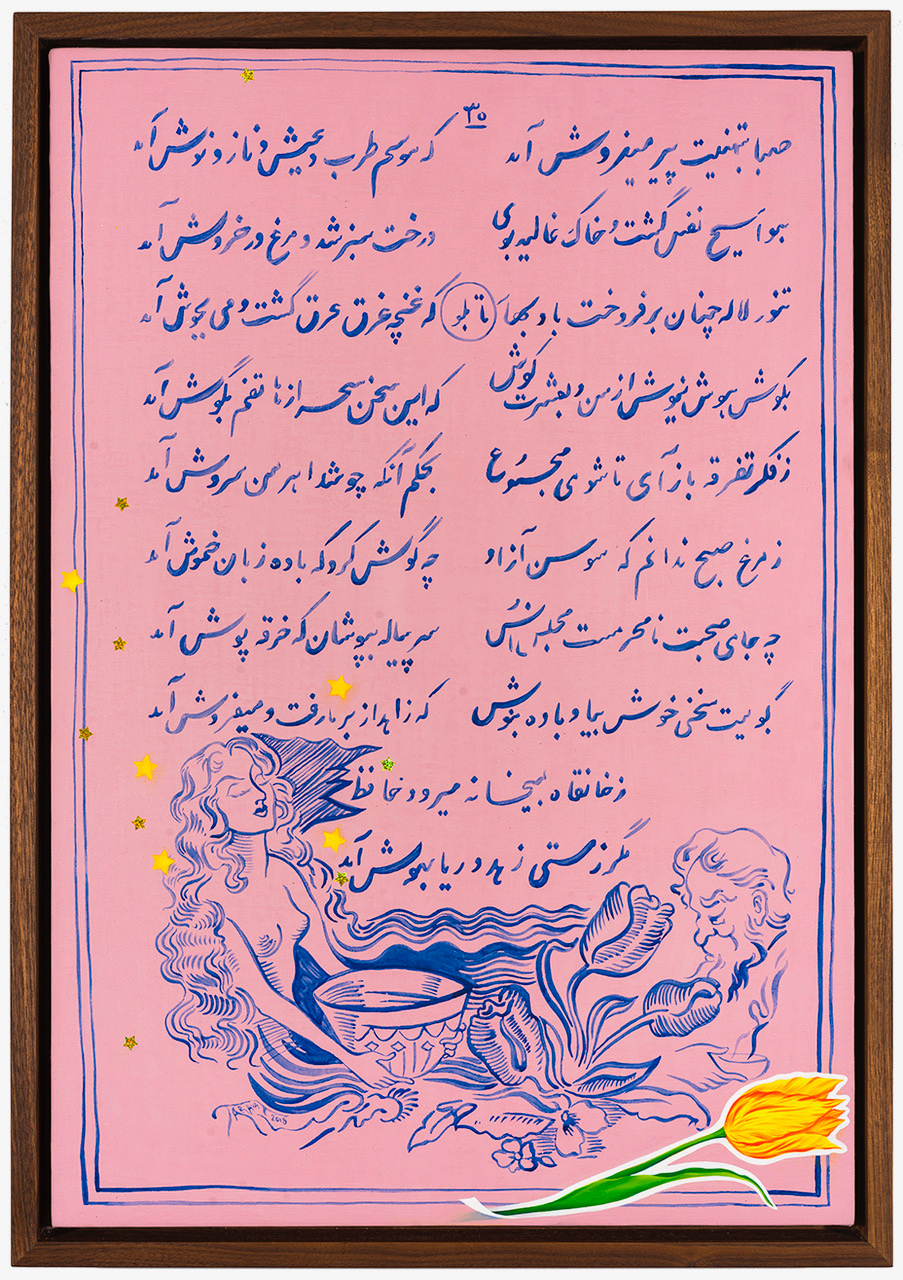 ۳۵
صبا بتهنیت پیر میفروش آمد که موسم طرب و عیش و ناز و نوش آمد
هوا مسیح نفس گشت و خاک غالیه بوی درخت سبز شد و مرغ در خروش آمد
تنور لاله چنان بر فروخت باد بهار تابلو که غنچه غرق عرق گشت و می بجوش آمد
بگوش هوش نیوش از من و بعشرت کوش که این سخن سحر از هاتفم بگوش آمد
ز فکر تفرقه باز آی تا شوی مجموع بحکم آنکه چو شد اهرمن سروش آمد
ز مرغ صبح ندانم که سوسن آزاد چه گوش کرد که باده زبان خموش آمد
چه جای صحبت نامحرمست مجلس انس سر پیاله بپوشان که خرقه پوش آمد
گویمت سخنی خوش بیا و باده بنوش که زاهد از بر ما رفت و میفروش آمد
ز خانقاه بمیخانه میرود حافظ
مگر ز مستی زهد و ریا بهوش آمد
2018